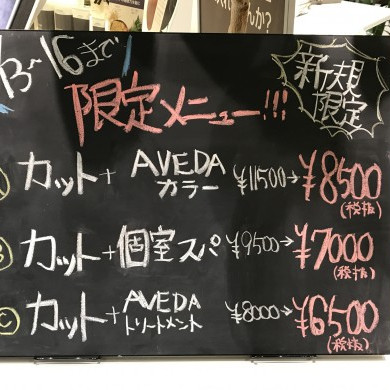 んか?
13~16まで!
新規
限定
限定メニュー!!!
カット+ AVEDA カラー ¥11500→¥8500
(税抜)
B カット+個室スパ ¥9500→¥7000
(税抜)
C カット+ AVEDA トリートメント ¥8000→¥6500
(税抜)